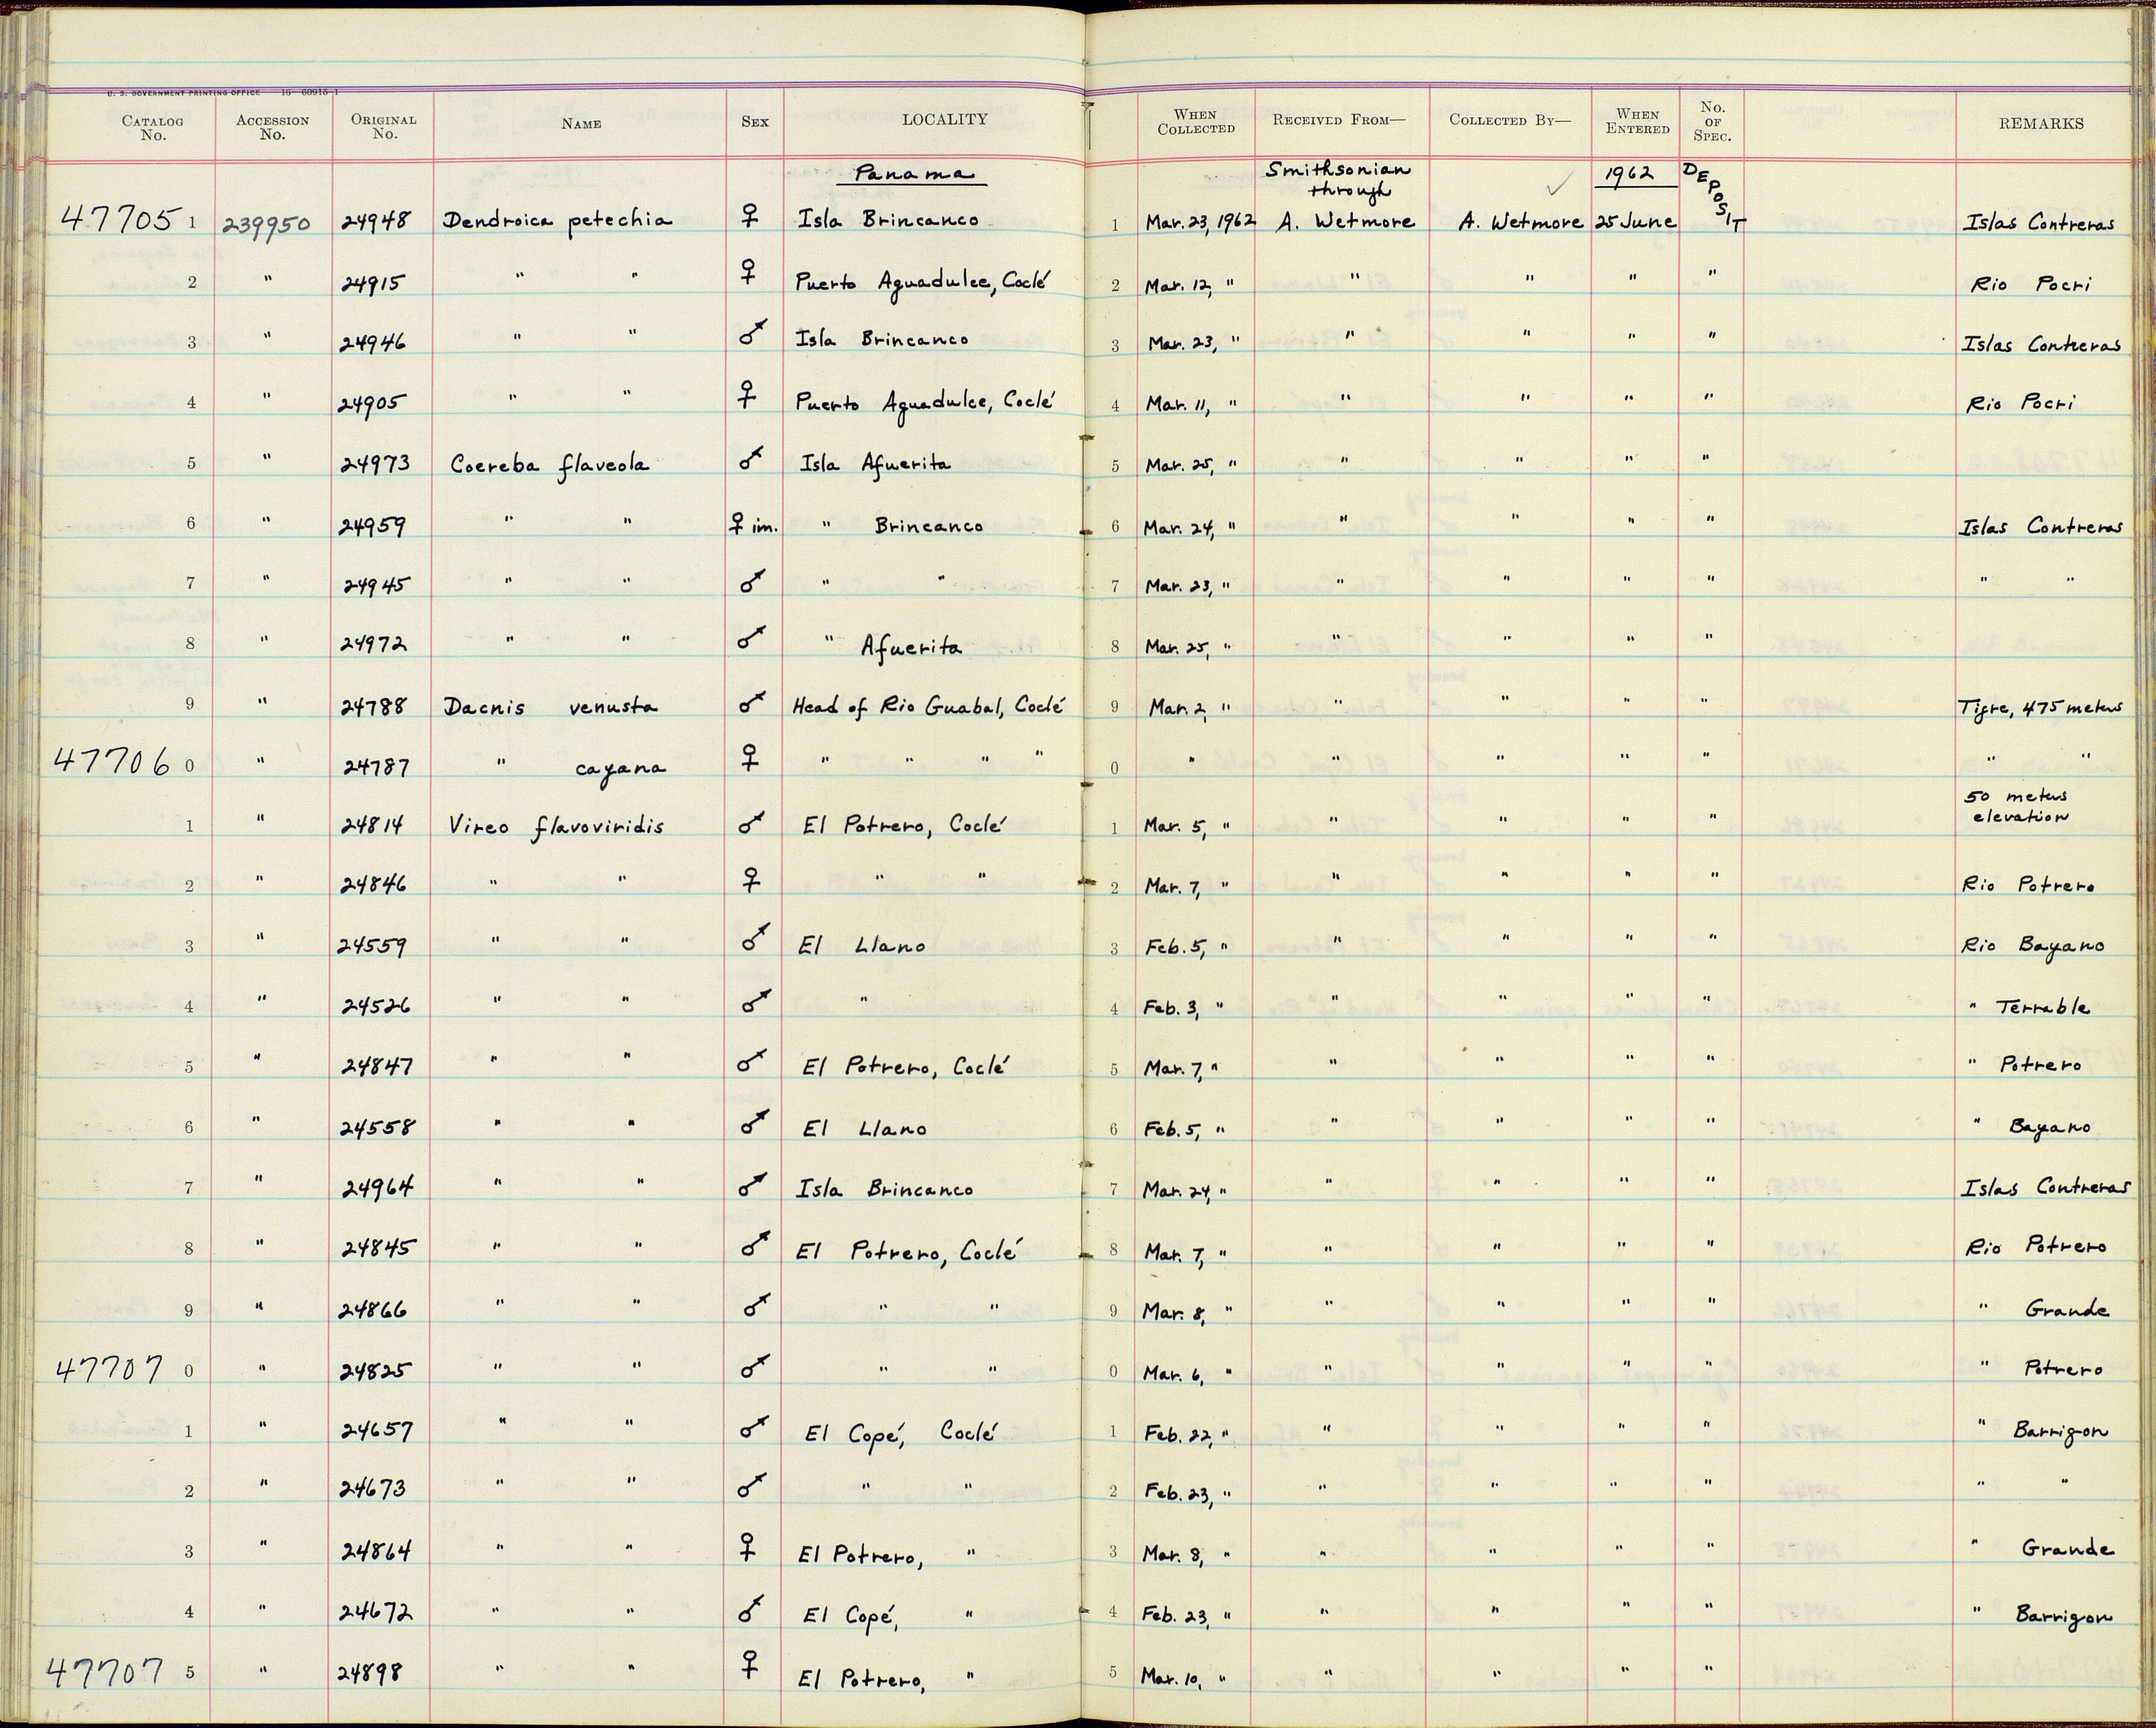 U. S. GOVERNMENT PRINTING OFFICE 16—60915-1
CATALOG No. ACCESSION No. ORIGINAL No. NAME SEX LOCALITY WHEN COLLECTED RECEIVED FROM— COLLECTED BY— WHEN ENTERED No. OF SPEC. REMARKS
Panama Smithsonian through ✓ 1962 DEPOSIT
47705 1 239950 24948 Dendroica petechia ♀ Isla Brincanco 1 Mar. 23, 1962 A. Wetmore A. Wetmore 25 June Islas Contreras
2 " 24915 " " ♀ Puerto Aguadulce, Coclé 2 Mar. 12, " " " " " Rio Pocri
3 " 24946 " " ♂ Isla Brincanco 3 Mar. 23, " " " " " Islas Contreras
4 " 24905 " " ♀ Puerto Aguadulce, Coclé 4 Mar. 11, " " " " " Rio Pocri
5 " 24973 Coereba flaveola ♂ Isla Afuerita 5 Mar. 25, " " " " "
6 " 24959 " " ♀ im. " Brincanco 6 Mar. 24, " " " " " Islas Contreras
7 " 24945 " " ♂ " " 7 Mar. 23, " " " " " " "
8 " 24972 " " ♂ " Afuerita 8 Mar. 25, " " " " "
9 " 24788 Dacnis venusta ♂ Head of Rio Guabal, Coclé 9 Mar. 2, " " " " " Tigre, 475 meters
47706 0 " 24787 " cayana ♀ " " " " 0 " " " " " " "
1 " 24814 Vireo flavoviridis ♂ El Potrero, Coclé 1 Mar. 5, " " " " " 50 meters elevation
2 " 24846 " " ♀ " " 2 Mar. 7, " " " " " Rio Potrero
3 " 24559 " " ♂ El Llano 3 Feb. 5, " " " " " Rio Bayano
4 " 24526 " " ♂ " 4 Feb. 3, " " " " " " Terrable
5 " 24847 " " ♂ El Potrero, Coclé 5 Mar. 7, " " " " " " Potrero
6 " 24558 " " ♂ El Llano 6 Feb. 5, " " " " " " Bayano
7 " 24964 " " ♂ Isla Brincanco 7 Mar. 24, " " " " " Islas Contreras
8 " 24845 " " ♂ El Potrero, Coclé 8 Mar. 7, " " " " " Rio Potrero
9 " 24866 " " ♂ " " 9 Mar. 8, " " " " " " Grande
47707 0 " 24825 " " ♂ " " 0 Mar. 6, " " " " " " Potrero
1 " 24657 " " ♂ El Copé, Coclé 1 Feb. 22, " " " " " " Barrigon
2 " 24673 " " ♂ " " 2 Feb. 23, " " " " " " "
3 " 24864 " " ♀ El Potrero, " 3 Mar. 8, " " " " " " Grande
4 " 24672 " " ♂ El Copé, " 4 Feb. 23, " " " " " " Barrigon
47707 5 " 24898 " " ♀ El Potrero, " 5 Mar. 10, " " " " "